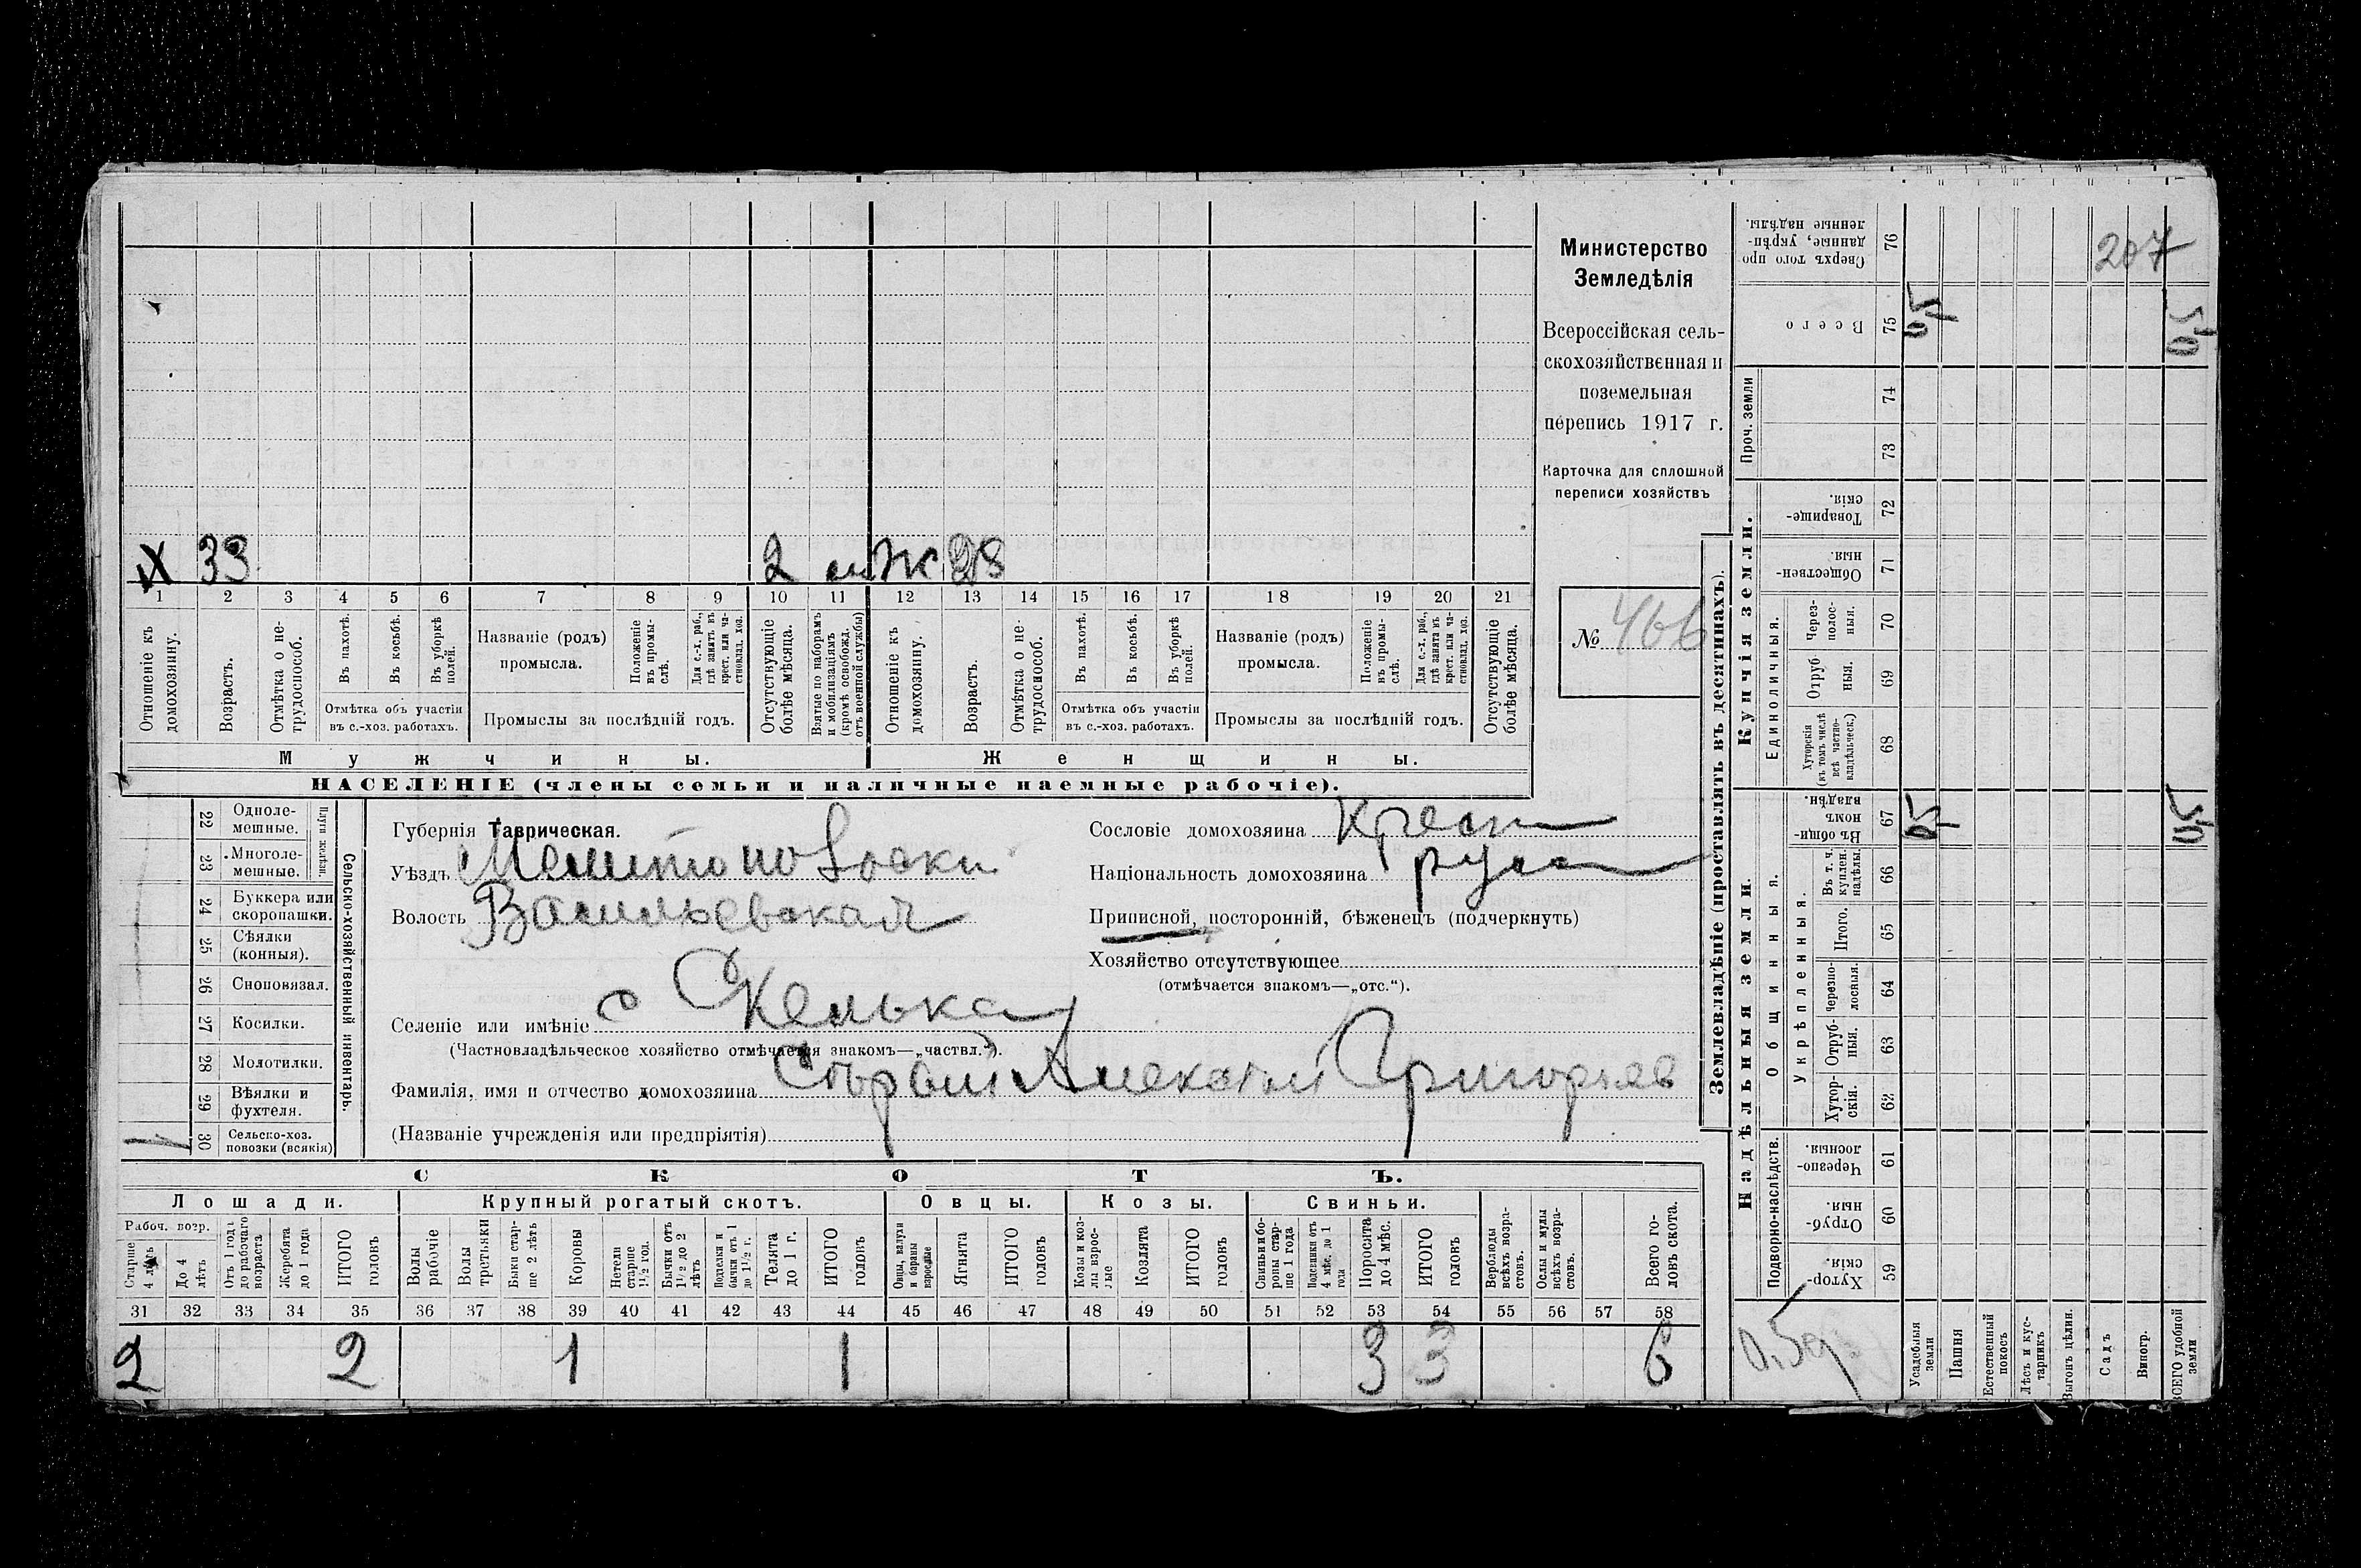 Х 33 2 Ж 28
1 2 3 4 5 6 7 8 9 10 11 12 13 14 15 16 17 18 19 20 21
Отношеніе къ домохозяину.
Возрастъ.
Отмѣтка о нетрудоспособ.
Въ пахотѣ.
Въ косьбѣ.
Въ уборкѣ полей.
Отмѣтка объ участіи
въ с.-хоз. работахъ.
Названіе (родъ)
промысла.
Положеніе въ промыслѣ.
Для с.-х. раб., гдѣ занятъ въ крест. или частновлад. хоз.
Промыслы за послѣдній годъ.
Отсутствующіе болѣе мѣсяца.
Взятые по наборамъ и мобилизаціямъ (кромѣ освобожд. отъ военной службы)
Отношеніе къ домохозяину.
Возрастъ.
Отмѣтка о нетрудоспособ.
Въ пахотѣ.
Въ косьбѣ.
Въ уборкѣ полей.
Отмѣтка объ участіи
въ с.-хоз. работахъ.
Названіе (родъ)
промысла.
Положеніе въ промыслѣ.
Для с.-х. раб., гдѣ занята въ крест. или частновлад. хоз.
Промыслы за послѣдній годъ.
Отсутствующіе болѣе мѣсяца.
Мужчины. Женщины.
НАСЕЛЕНІЕ (члены семьи и наличные наемные рабочіе).
Министерство
Земледѣлія
Всероссійская сель-
скохозяйственная и
поземельная
перепись 1917 г.
Карточка для сплошной
переписи хозяйствъ
№ 466
22 Одноле-
мешные.
23 Многоле-
мешные.
Плуги желѣзн.
24 Буккера или
скоропашки.
25 Сѣялки
(конныя).
26 Сноповязал.
27 Косилки.
28 Молотилки.
29 Вѣялки и
фухтеля.
1 30 Сельско-хоз.
повозки (всякія)
Сельско-хозяйственный инвентарь.
Губернія Таврическая.
Уѣздъ
Волость Васильевская
Селеніе или имѣніе с Скелька
(Частновладѣльческое хозяйство отмѣчается знакомъ—„частвл.").
Фамилія, имя и отчество домохозяина Алексѣй Григорьев
(Названіе учрежденія или предпріятія)
Сословіе домохозяина Крест
Національность домохозяина русс
Приписной, посторонній, бѣженецъ (подчеркнуть)
Хозяйство отсутствующее
(отмѣчается знакомъ—„отс.").
СКОТЪ.
Лошади. Крупный рогатый скотъ. Овцы. Козы. Свиньи.
Рабоч. возр.
Старше 4 лѣтъ
До 4 лѣтъ
Отъ 1 года до рабочаго возраста
Жеребята до 1 года
ИТОГО головъ
Волы рабочіе
Волы третьяки
Быки старше 2 лѣтъ
Коровы
Нетели старше 1½ год.
Бычки отъ 1½ до 2 лѣтъ
Подтелки и бычки отъ 1 до 1½ г.
Телята до 1 г.
ИТОГО головъ
Овцы, валухи и бараны взрослые
Ягнята
ИТОГО головъ
Козы и козлы взрослые
Козлята
ИТОГО головъ
Свиньи и боровы старше 1 года
Подсвинки отъ 4 мѣс. до 1 года
Поросята до 4 мѣс.
ИТОГО головъ
Верблюды всѣхъ возрастовъ.
Ослы и мулы всѣхъ возрастовъ.
Всего головъ скота.
31 32 33 34 35 36 37 38 39 40 41 42 43 44 45 46 47 48 49 50 51 52 53 54 55 56 57 58
2 2 1 1 3 3 6
Землевладѣніе (проставлять въ десятинахъ).
Купчія земли.
Надѣльныя земли.
76 Сверхъ того проданные, укрѣпленные надѣлы.
207
75 Всего
05 05
Проч. земли
74
73
72 Товарищескія.
71 Общественныя.
Единоличныя.
70 Черезполосныя.
69 Отрубныя.
68 Хуторскія (въ томъ числѣ всѣ частновладѣльческ.)
Общинныя.
67 Въ общинномъ владѣн.
05 05
Укрѣпленныя.
66 Въ т. ч. куплен. надѣлы.
65 Итого.
64 Черезполосныя.
63 Отрубныя.
62 Хуторскія.
Подворно-наслѣдств.
61 Черезполосныя.
60 Отрубныя.
59 Хуторскія.
0,5
Усадебныя земли
Пашня
Естественный покосъ
Лѣсъ и кустарникъ
Выгонъ цѣлин.
Садъ
Виногр.
ВСЕГО удобной земли